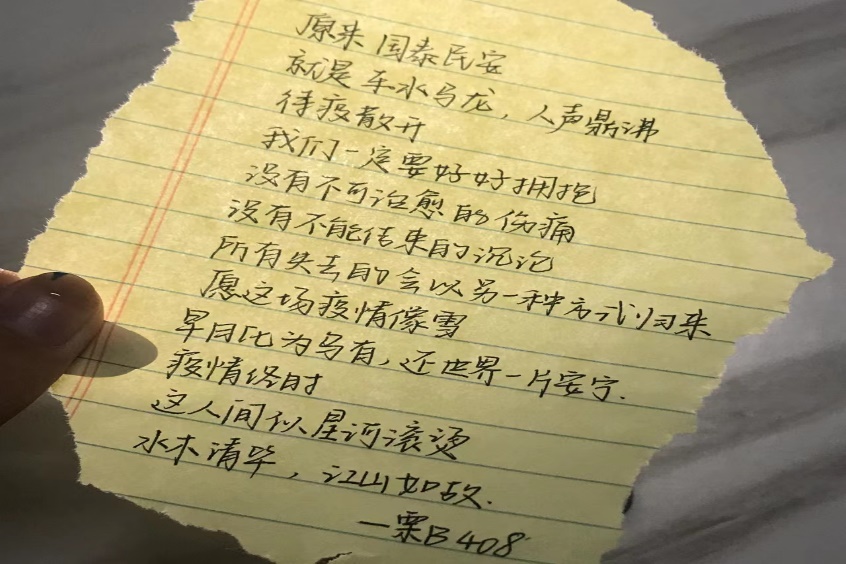 原来 国泰民安
就是 车水马龙，人声鼎沸
待疫散开
我们一定要好好拥抱
没有不可治愈的伤痛
没有不能结束的沉沦
所有失去的会以另一种方式归来
愿这场疫情像雪
早日化为乌有，还世界一片安宁.
疫情终时
这人间似星河滚烫
水木清华，江山如故.
—栗B408